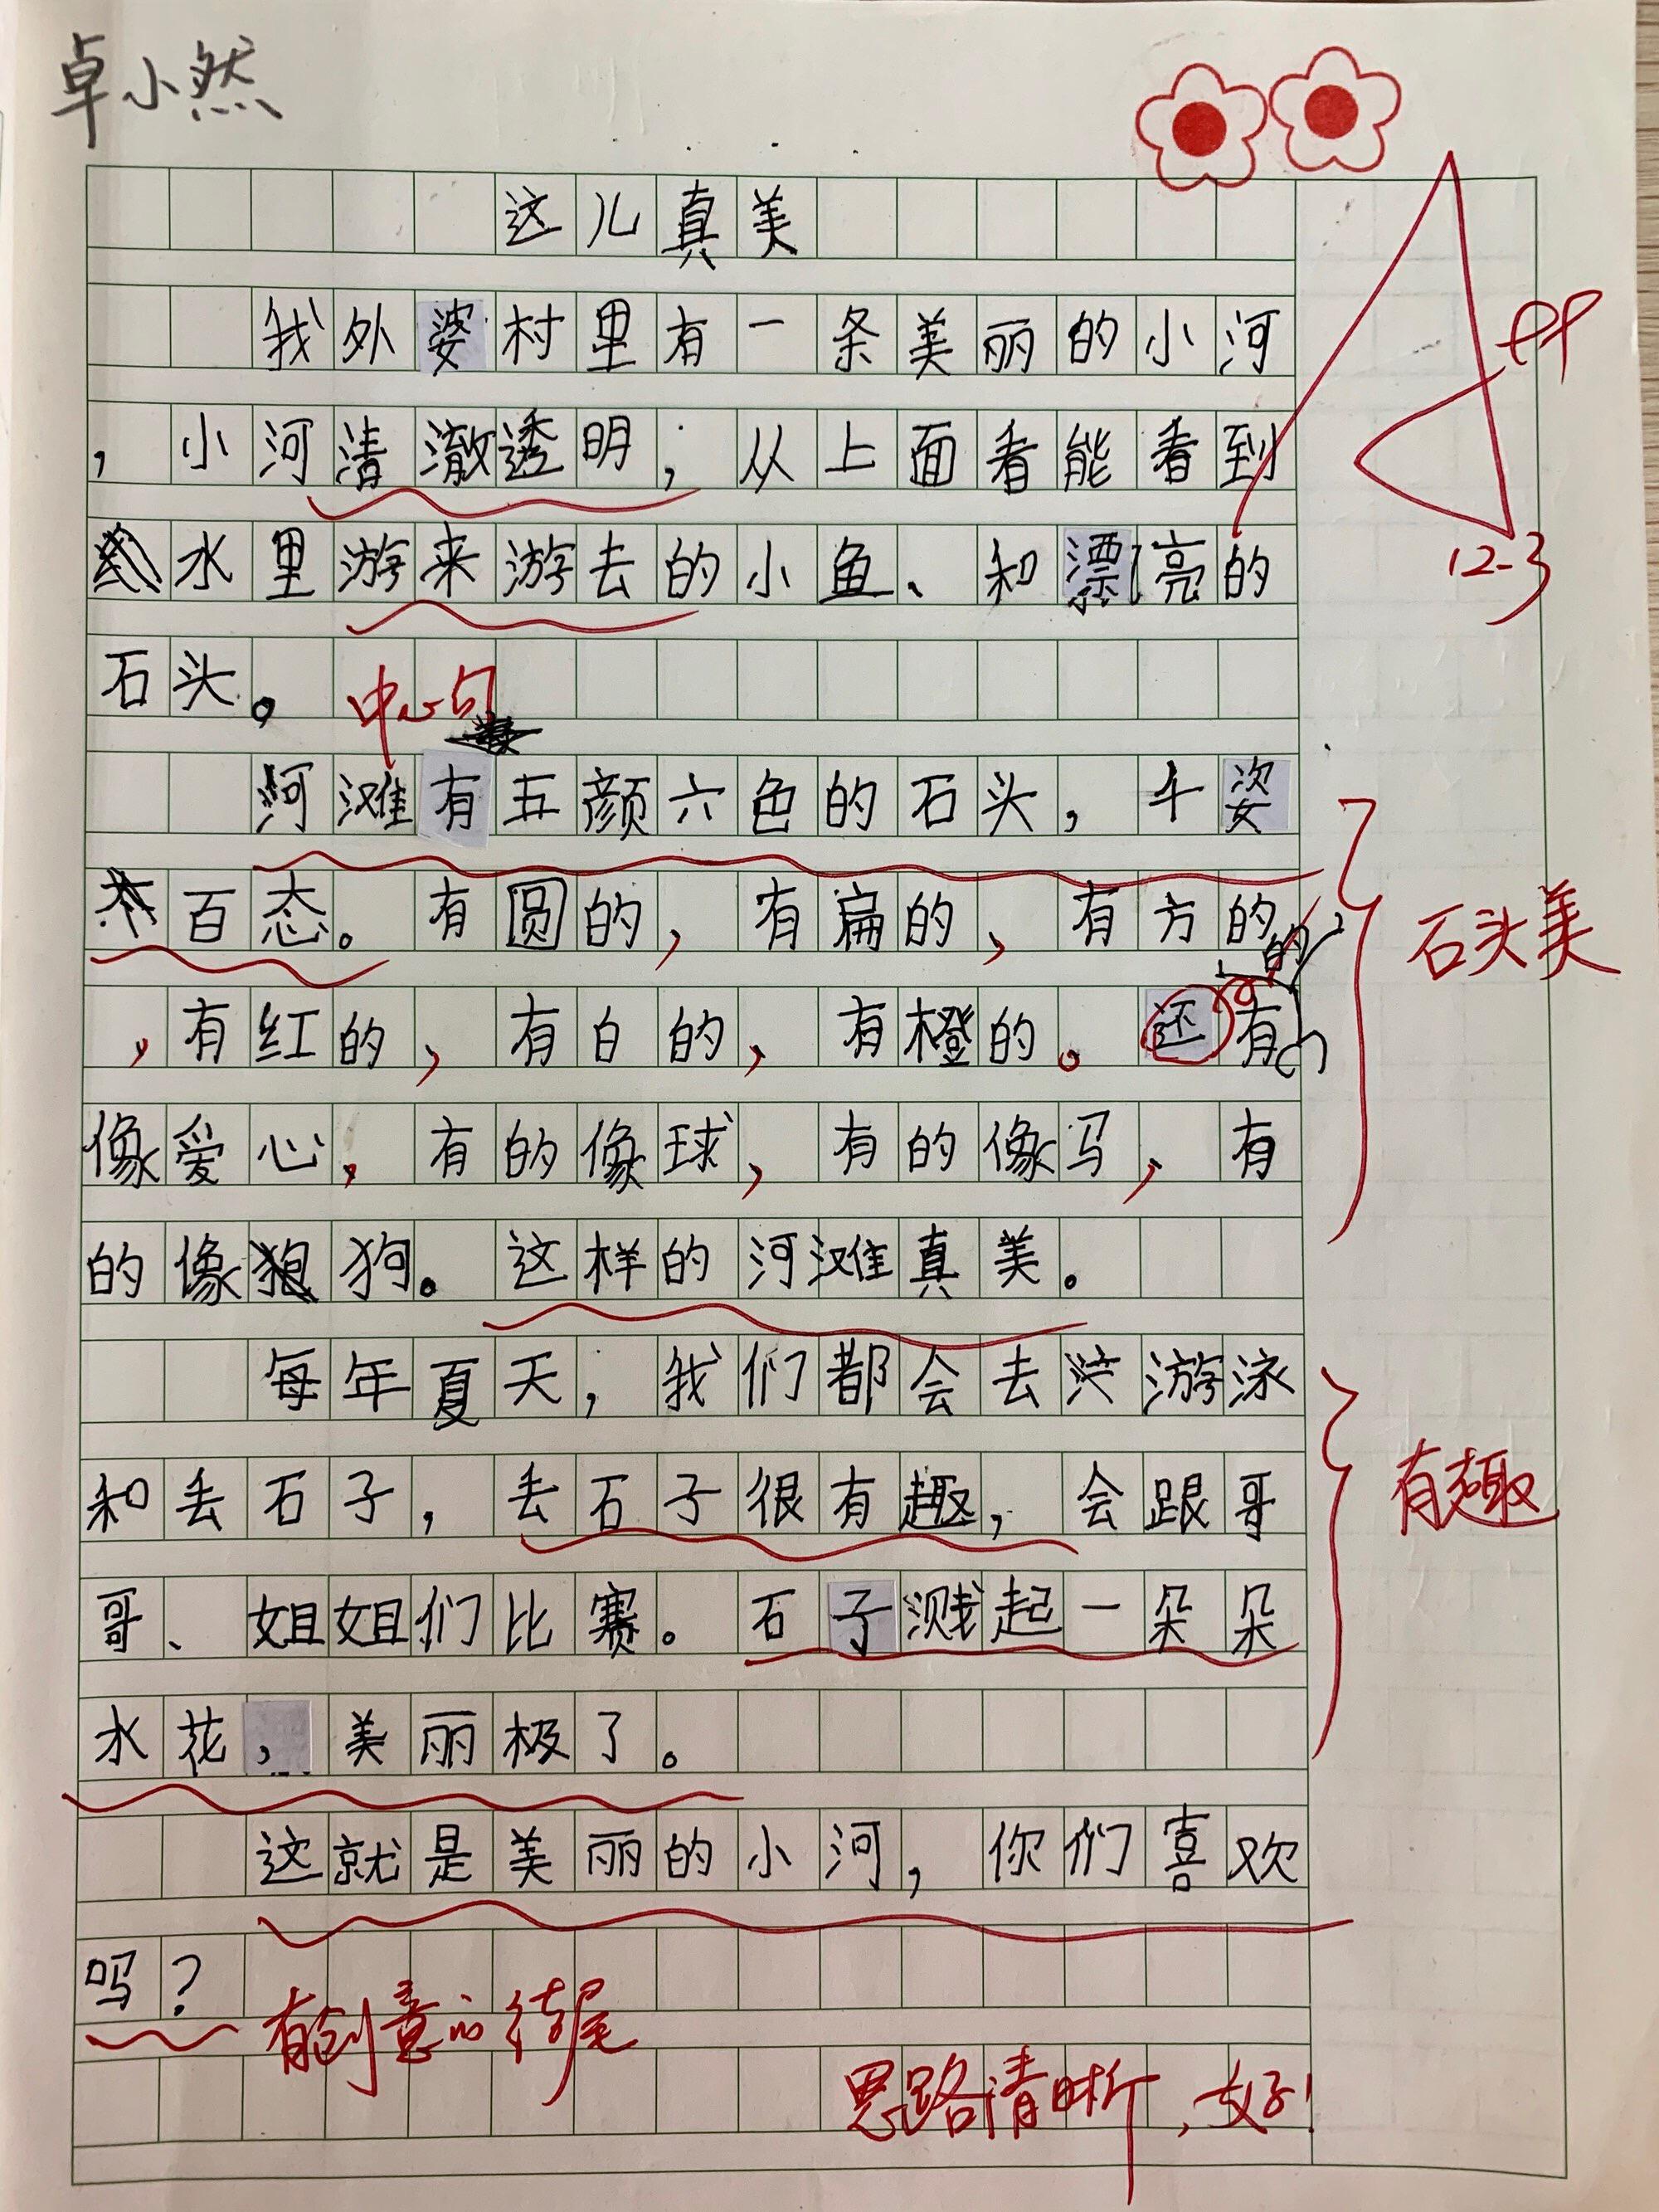 卓小然
这儿真美
我外婆村里有一条美丽的小河
，小河清澈透明，从上面看能看到
水里游来游去的小鱼、和漂亮的
石头。
中心句
河滩有五颜六色的石头，千姿
百态。有圆的，有扁的，有方的
，有红的，有白的，有橙的。还有的
像爱心，有的像球，有的像马，有
的像狗。这样的河滩真美。
石头美
每年夏天，我们都会去游泳
和丢石子，丢石子很有趣，会跟哥
哥、姐姐们比赛。石子溅起一朵朵
水花，美丽极了。
有趣
这就是美丽的小河，你们喜欢
吗？
有创意的结尾
思路清晰，好！
12-3